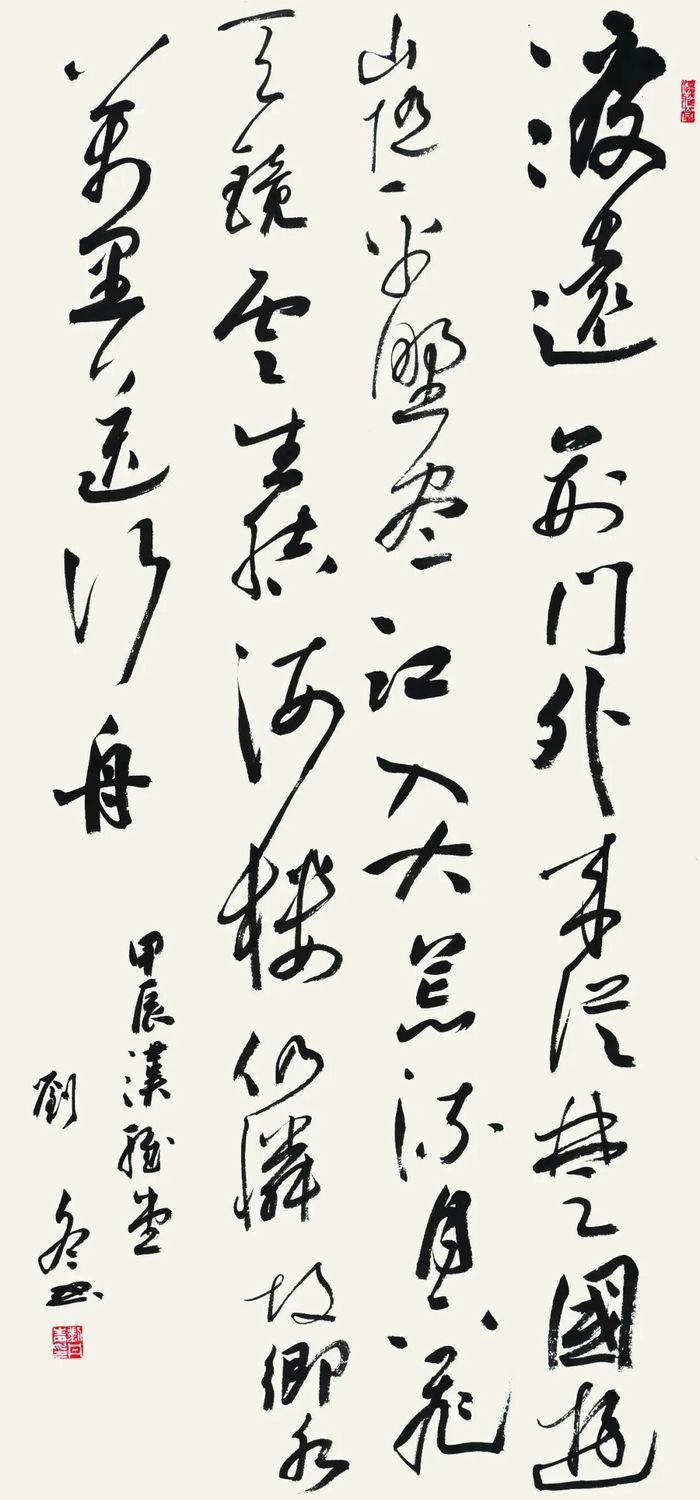 渡遠荊門外来從楚國遊
山隨平野尽江入大荒流月下飛
天鏡雲生結海樓仍憐故鄉水
萬里送行舟
甲辰漢堂
劉冬书